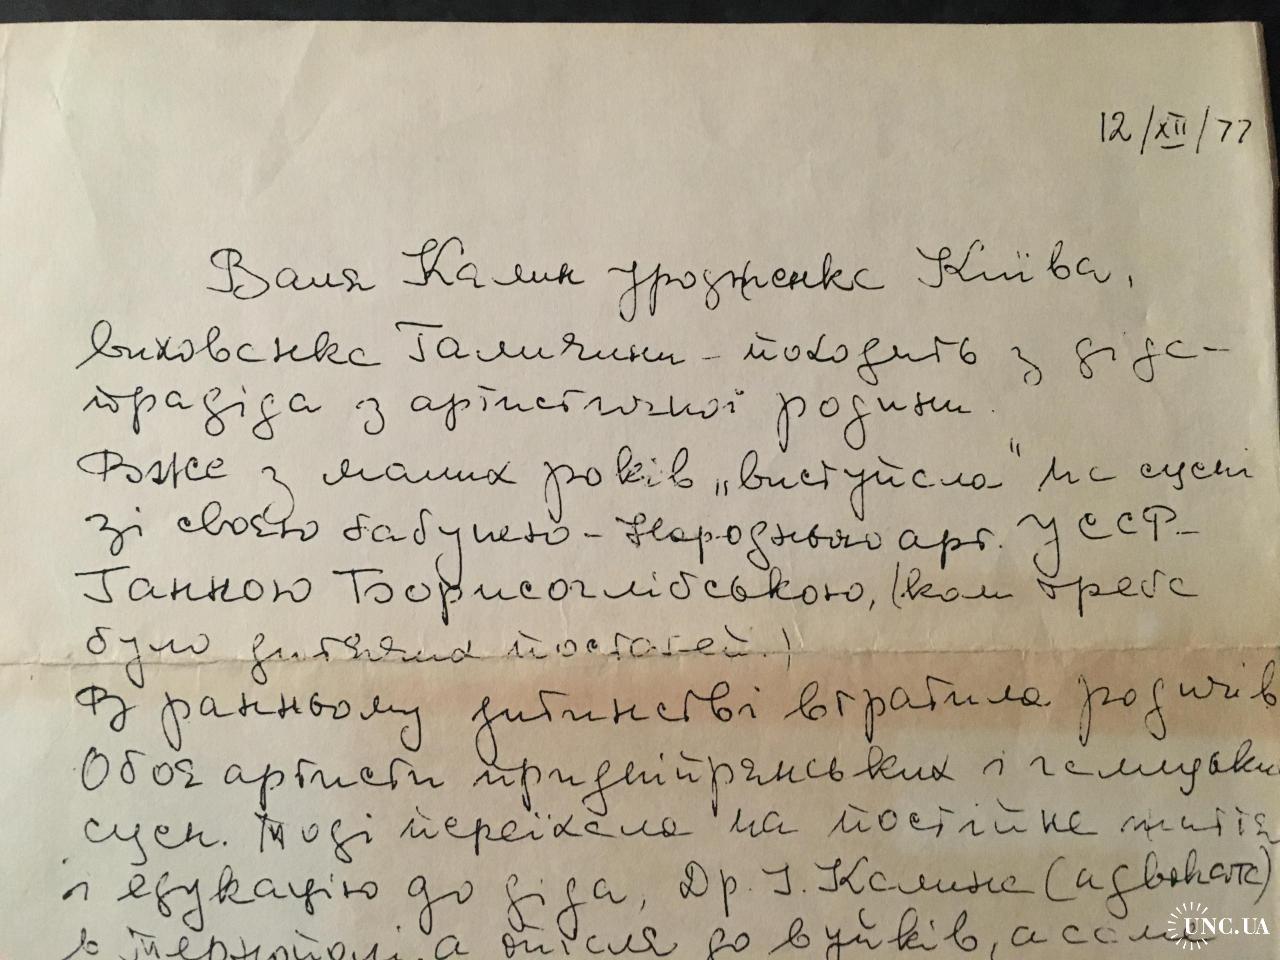 12/XII/77
Валя Калин уродженка Київа,
вихованка Галичини - походить з діда-
прадіда з артистичної родини.
Вже з малих років „виступала" на сцені
зі своєю бабунею - Народньою арт. УССР -
Ганною Борисоглібською, (коли треба
було дитячих постатей.)
В ранньому дитинстві втратила родичів
Обоє артисти придніпрянських і галицьких
сцен. Тоді переїхала на постійне життя
і едукацію до діда, Др. І. Калина (адвоката)
в Тернополі, а опісля до вуйків, а саме
UNC.UA